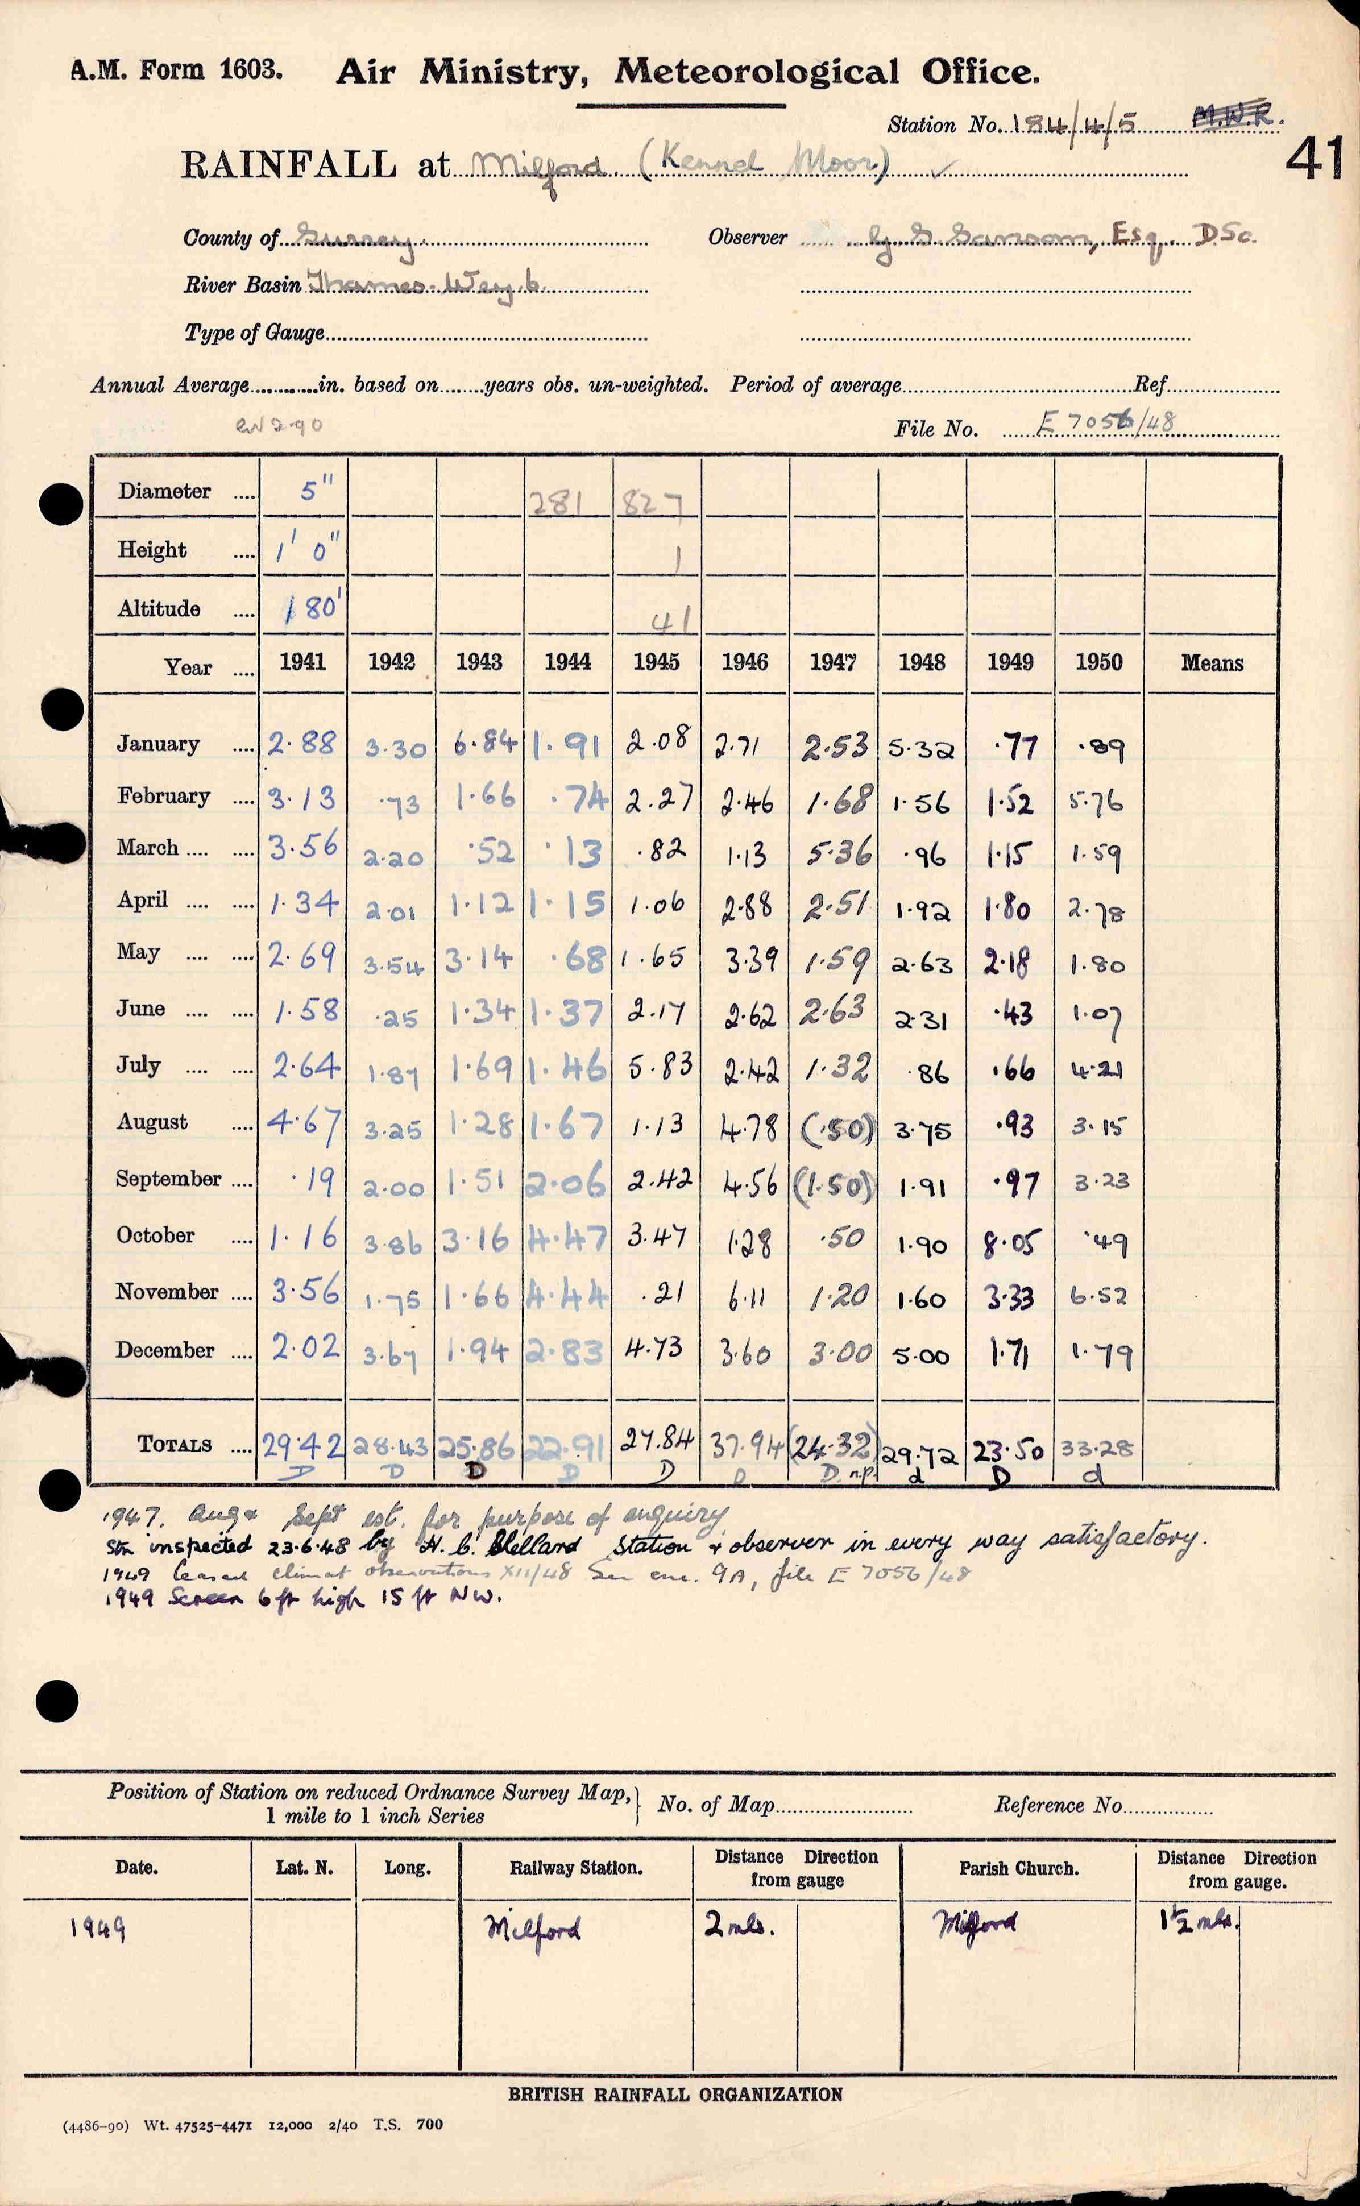 A.M. Form 1603. Air Ministry, Meteorological Office.
Station No. 184/4/5 M.W.R.
41
RAINFALL at Milford (Kennel Moor) ✓
County of Surrey Observer G. S. Sansom, Esq. D.Sc.
River Basin Thames. Wey. b.
Type of Gauge
Annual Average............in. based on.......years obs. un-weighted. Period of average Ref.
File No. E 7056/48
Diameter .... 5" 281 827
Height .... 1' 0" 1
Altitude .... 180' 41
Year .... 1941 1942 1943 1944 1945 1946 1947 1948 1949 1950 Means
January .... 2.88 3.30 6.84 1.91 2.08 2.71 2.53 5.32 .77 .89
February .... 3.13 .73 1.66 .74 2.27 2.46 1.68 1.56 1.52 5.76
March .... .... 3.56 2.20 .52 .13 .82 1.13 5.36 .96 1.15 1.59
April .... .... 1.34 2.01 1.12 1.15 1.06 2.88 2.51 1.92 1.80 2.78
May .... .... 2.69 3.54 3.14 .68 1.65 3.39 1.59 2.63 2.18 1.80
June .... .... 1.58 .25 1.34 1.37 2.17 2.62 2.63 2.31 .43 1.07
July .... .... 2.64 1.87 1.69 1.46 5.83 2.42 1.32 .86 .66 4.21
August .... 4.67 3.25 1.28 1.67 1.13 4.78 (.50) 3.75 .93 3.15
September .... .19 2.00 1.51 2.06 2.42 4.56 (1.50) 1.91 .97 3.23
October .... 1.16 3.86 3.16 4.47 3.47 1.28 .50 1.90 8.05 .49
November .... 3.56 1.75 1.66 4.44 .21 6.11 1.20 1.60 3.33 6.52
December .... 2.02 3.67 1.94 2.83 4.73 3.60 3.00 5.00 1.71 1.79
TOTALS .... 29.42 28.43 25.86 22.91 27.84 37.94 (24.32) 29.72 23.50 33.28
D D D D D D D n.p. d D d
1947. Aug & Sept est. for purpose of enquiry
Stn inspected 23.6.48 by H. C. Station & observer in every way satisfactory.
1949 Ceased climat observations XII/48 See enc. 9A, file E 7056/48
1949 Screen 6 ft high 15 ft NW.
Position of Station on reduced Ordnance Survey Map, 1 mile to 1 inch Series No. of Map Reference No.
Date. Lat. N. Long. Railway Station. Distance Direction from gauge Parish Church. Distance Direction from gauge.
1949 Milford 2 mls. Milford 1½ mls.
BRITISH RAINFALL ORGANIZATION
(4486-90) Wt. 47525-4471 12,000 2/40 T.S. 700